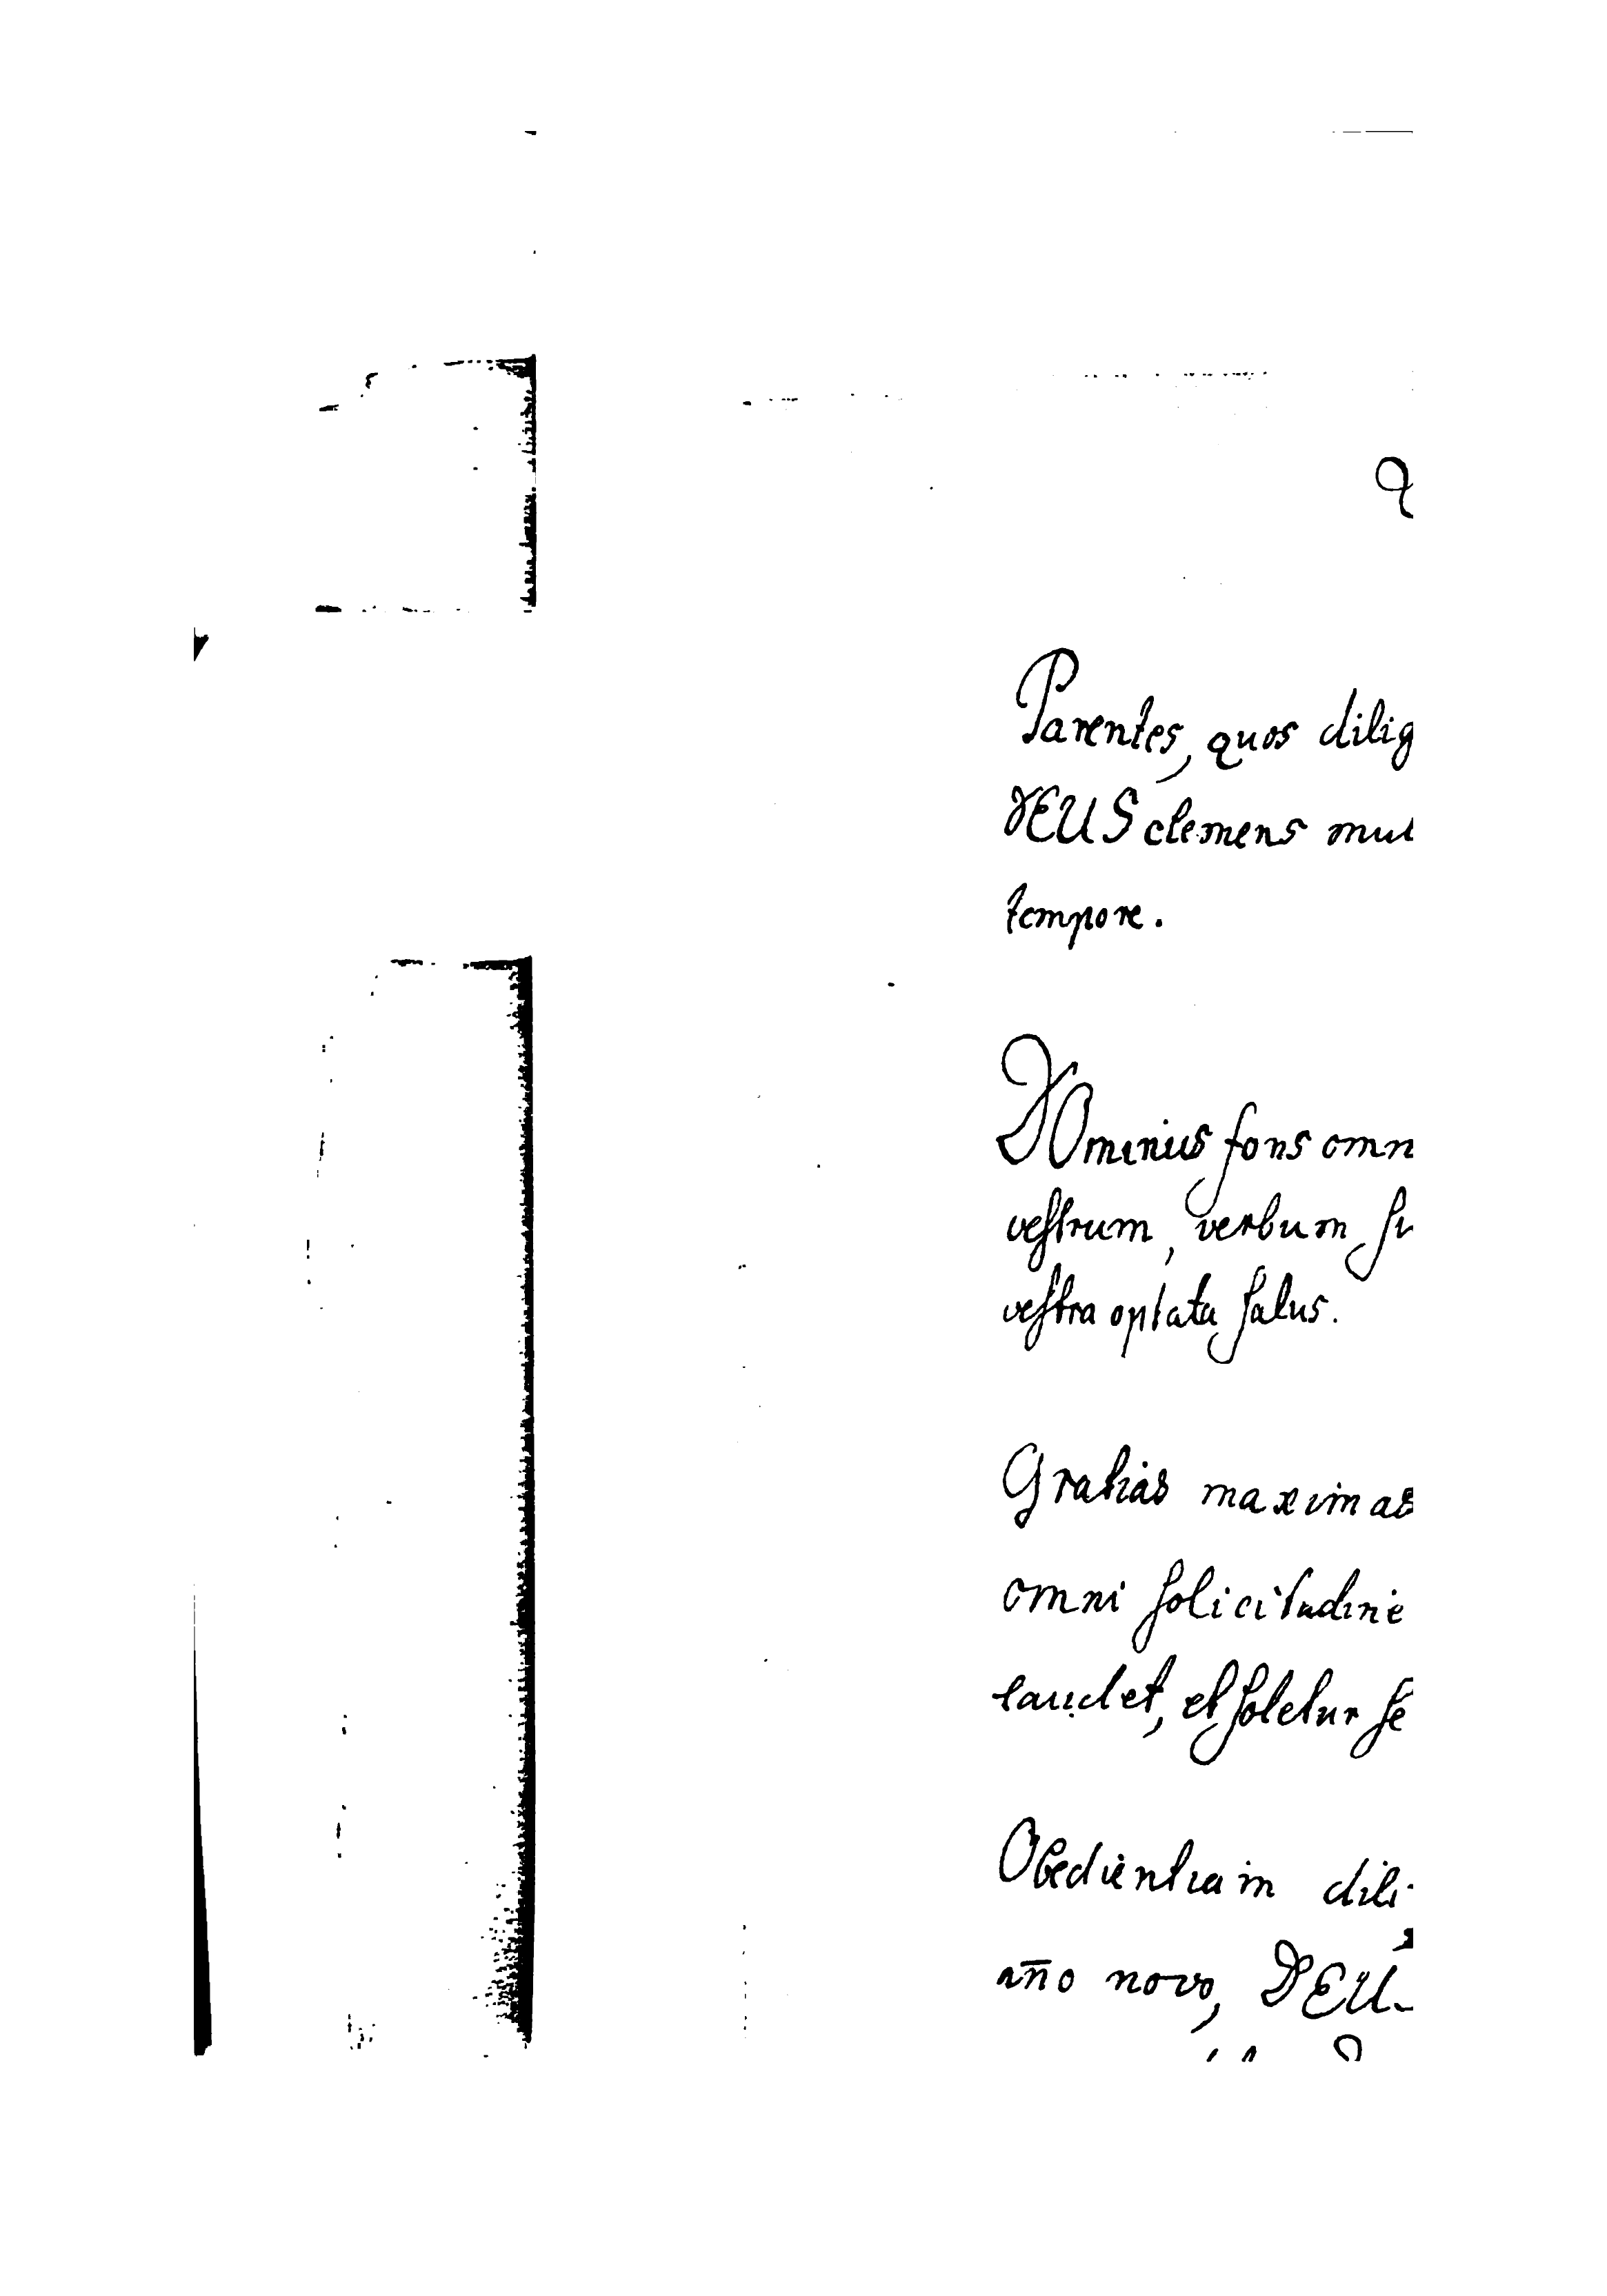 Parentes, quos dilig
DEUS clemens mul
tempore.
DOminus fons omn
vestrum, verbum su
vestra optata salus.
Gratias maximas
omni solicitudine
laudet, et soletur se
Obedientiam dili
año novo, DEU